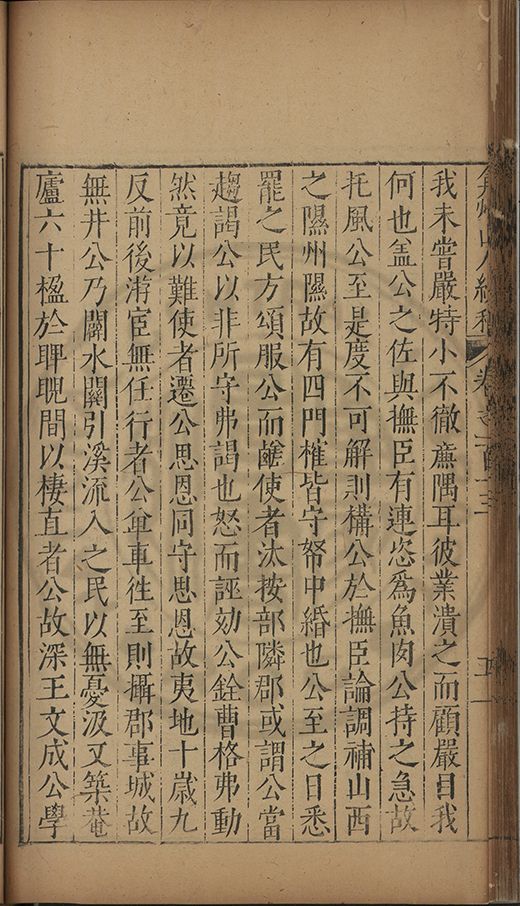 弇州山人續稿 卷之一百十三 五
我未嘗嚴特小不徹廉隅耳彼業潰之而顧嚴目我
何也盖公之佐與撫臣有連恣爲魚肉公持之急故
托風公至是度不可解則構公於撫臣論調補山西
之隰州隰故有四門榷皆守帑中緡也公至之日悉
罷之民方頌服公而鹺使者汰按部隣郡或謂公當
趨謁公以非所守弗謁也怒而誣劾公銓曹格弗動
然竟以難使者遷公思恩同守思恩故夷地十歲九
反前後游宦無任行者公單車徃至則攝郡事城故
無井公乃闢水關引溪流入之民以無憂汲又築菴
廬六十楹於睥睨間以棲直者公故深王文成公學